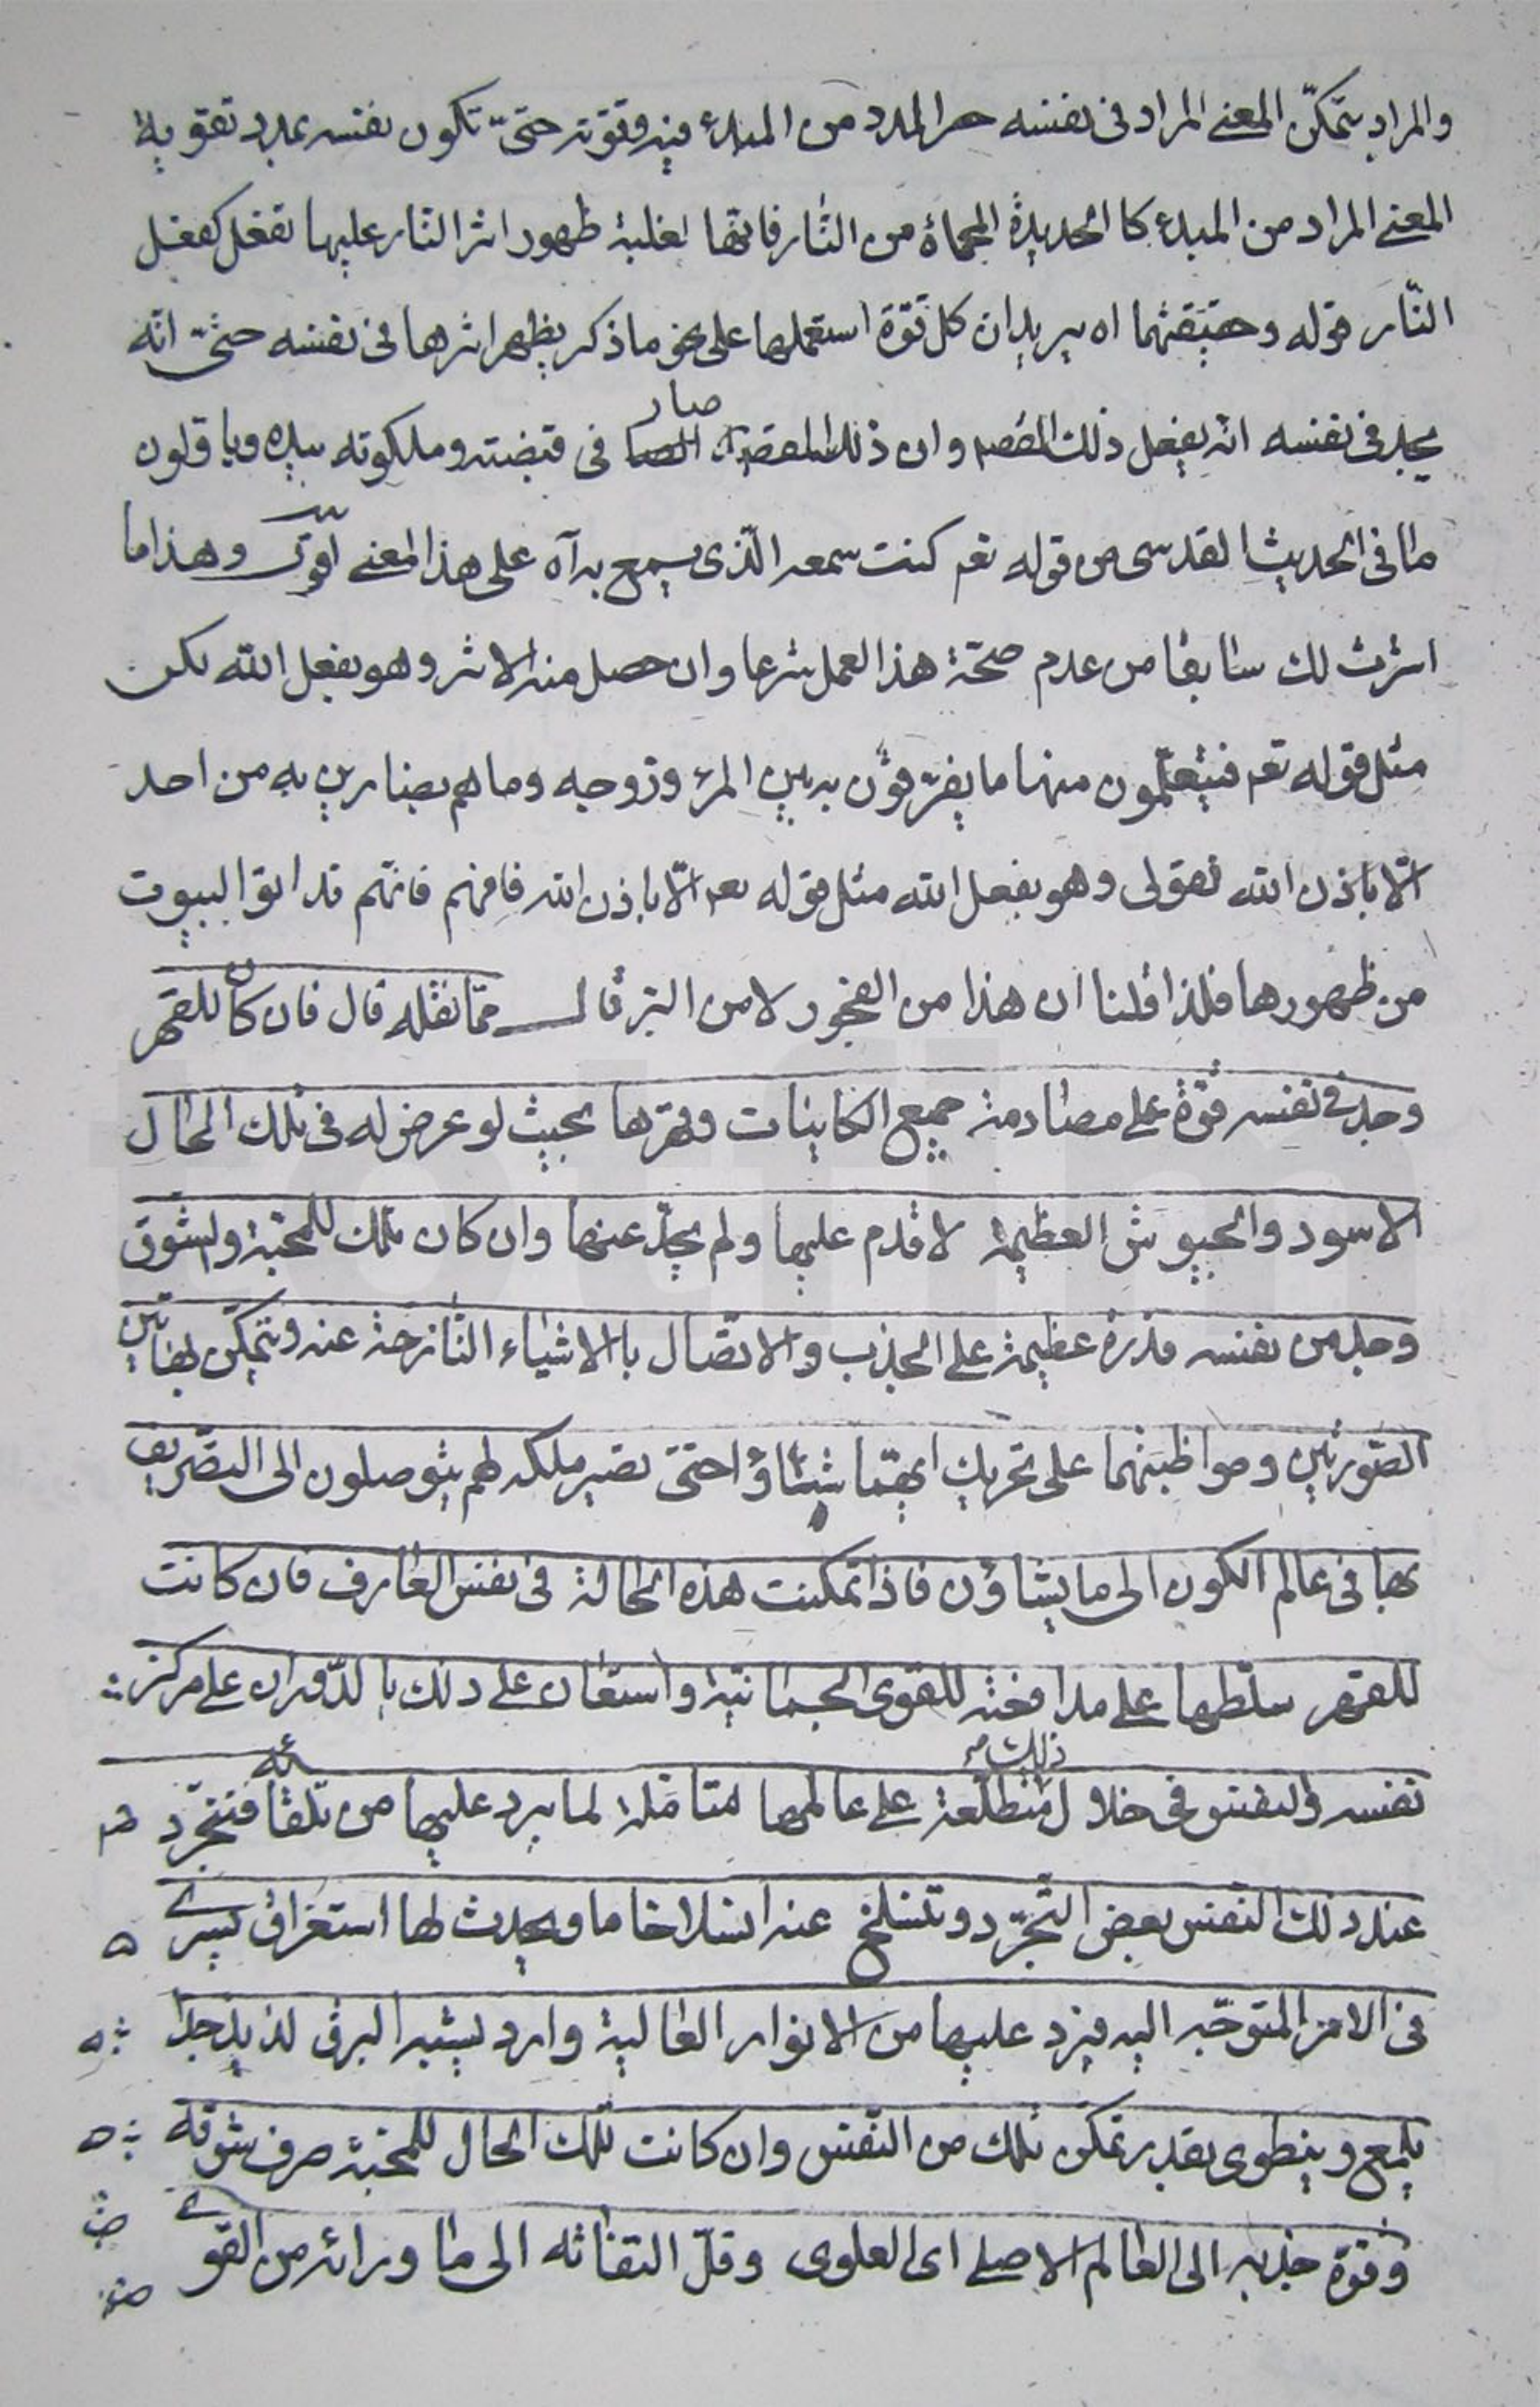 والمراد بتمكّن المعنى المراد فى نفسه حر المدد من المبدء فيه وقوته حتىّ تكون نفسه بمدد تقوية
المعنى المراد من المبدء كا الحديدة المحماة من النّار فانّها لغلبة ظهور اثر النّار عليها تفعل كفعل
النّار قوله وحقيقتهما اه يريد ان كل قوّة استعملها على نحو ما ذكر يظهر اثرها فى نفسه حتىّ انّه
يجد فى نفسه انه يفعل ذلك وان ذلك صار فى قبضته وملكوته بيده ويا قلون
ما فى الحديث القدسى من قوله تعـ كنت سمعه الّذى يسمع به آه على هذا المعنى وهذا ما
اشرت لك سابقا من عدم صحّة هذا العمل شرعا وان حصل منه الاثر وهو بفعل الله لكن
مثل قوله تعـ فيتعلّمون منهما ما يفرّقون به بين المرء وزوجه وما هم بضارين به من احد
الّا باذن الله فقولى وهو بفعل الله مثل قوله تعـ الّا باذن الله فافهم فانّهم قد اتوا البيوت
من ظهورها فلذا قلنا ان هذا من الفجور لا من البر قال ممّا نقله قال فان كان للقهر
وجد فى نفسه قوّة على مصادمة جميع الكاينات وقهرها بحيث لو عرض له فى تلك الحال
الاسود والجيوش العظيمة لاقدم عليها ولم يحد عنها وان كان تلك للمحبّة والشوق
وجد من نفسه قدرة عظيمة على الجذب والاتصال باالاشياء النّازحة عنه ويتمكّن بهاتين
الصّورتين ومواظبتهما على تحريك ايهّما شاؤا حتىّ تصير ملكه لهم يتوصلون الى التصّريف
بها فى عالم الكون الى ما يشاؤن فاذا تمكنت هذه الحالة فى نفس العارف فان كانت
للقهر سلّطها على مدافعة للقوى الجسمانيّة واستعان على ذلك باالدّوران على مركز
نفسه والنفس فى خلال ذلك متطلّعة على عالمها متامّلة لما يرد عليها من تلقائه فتجرّد
عند ذلك النفس بعض التّجرّد وتنسلخ عنه انسلاخا ما ويحدث لها استغراق يسرى
فى الامر المتوجّه اليه فيرد عليها من الانوار العالية وارد يشبه البرق لذيذ جدّا
يلمع وينطوى بقدر تمكّن تلك من النّفس وان كانت تلك الحال للمحبّة صرف شوقه
وقوّة جذبه الى العالم الاصلى اى العلوى وقلّ التفاته الى ما ورائه من القوى